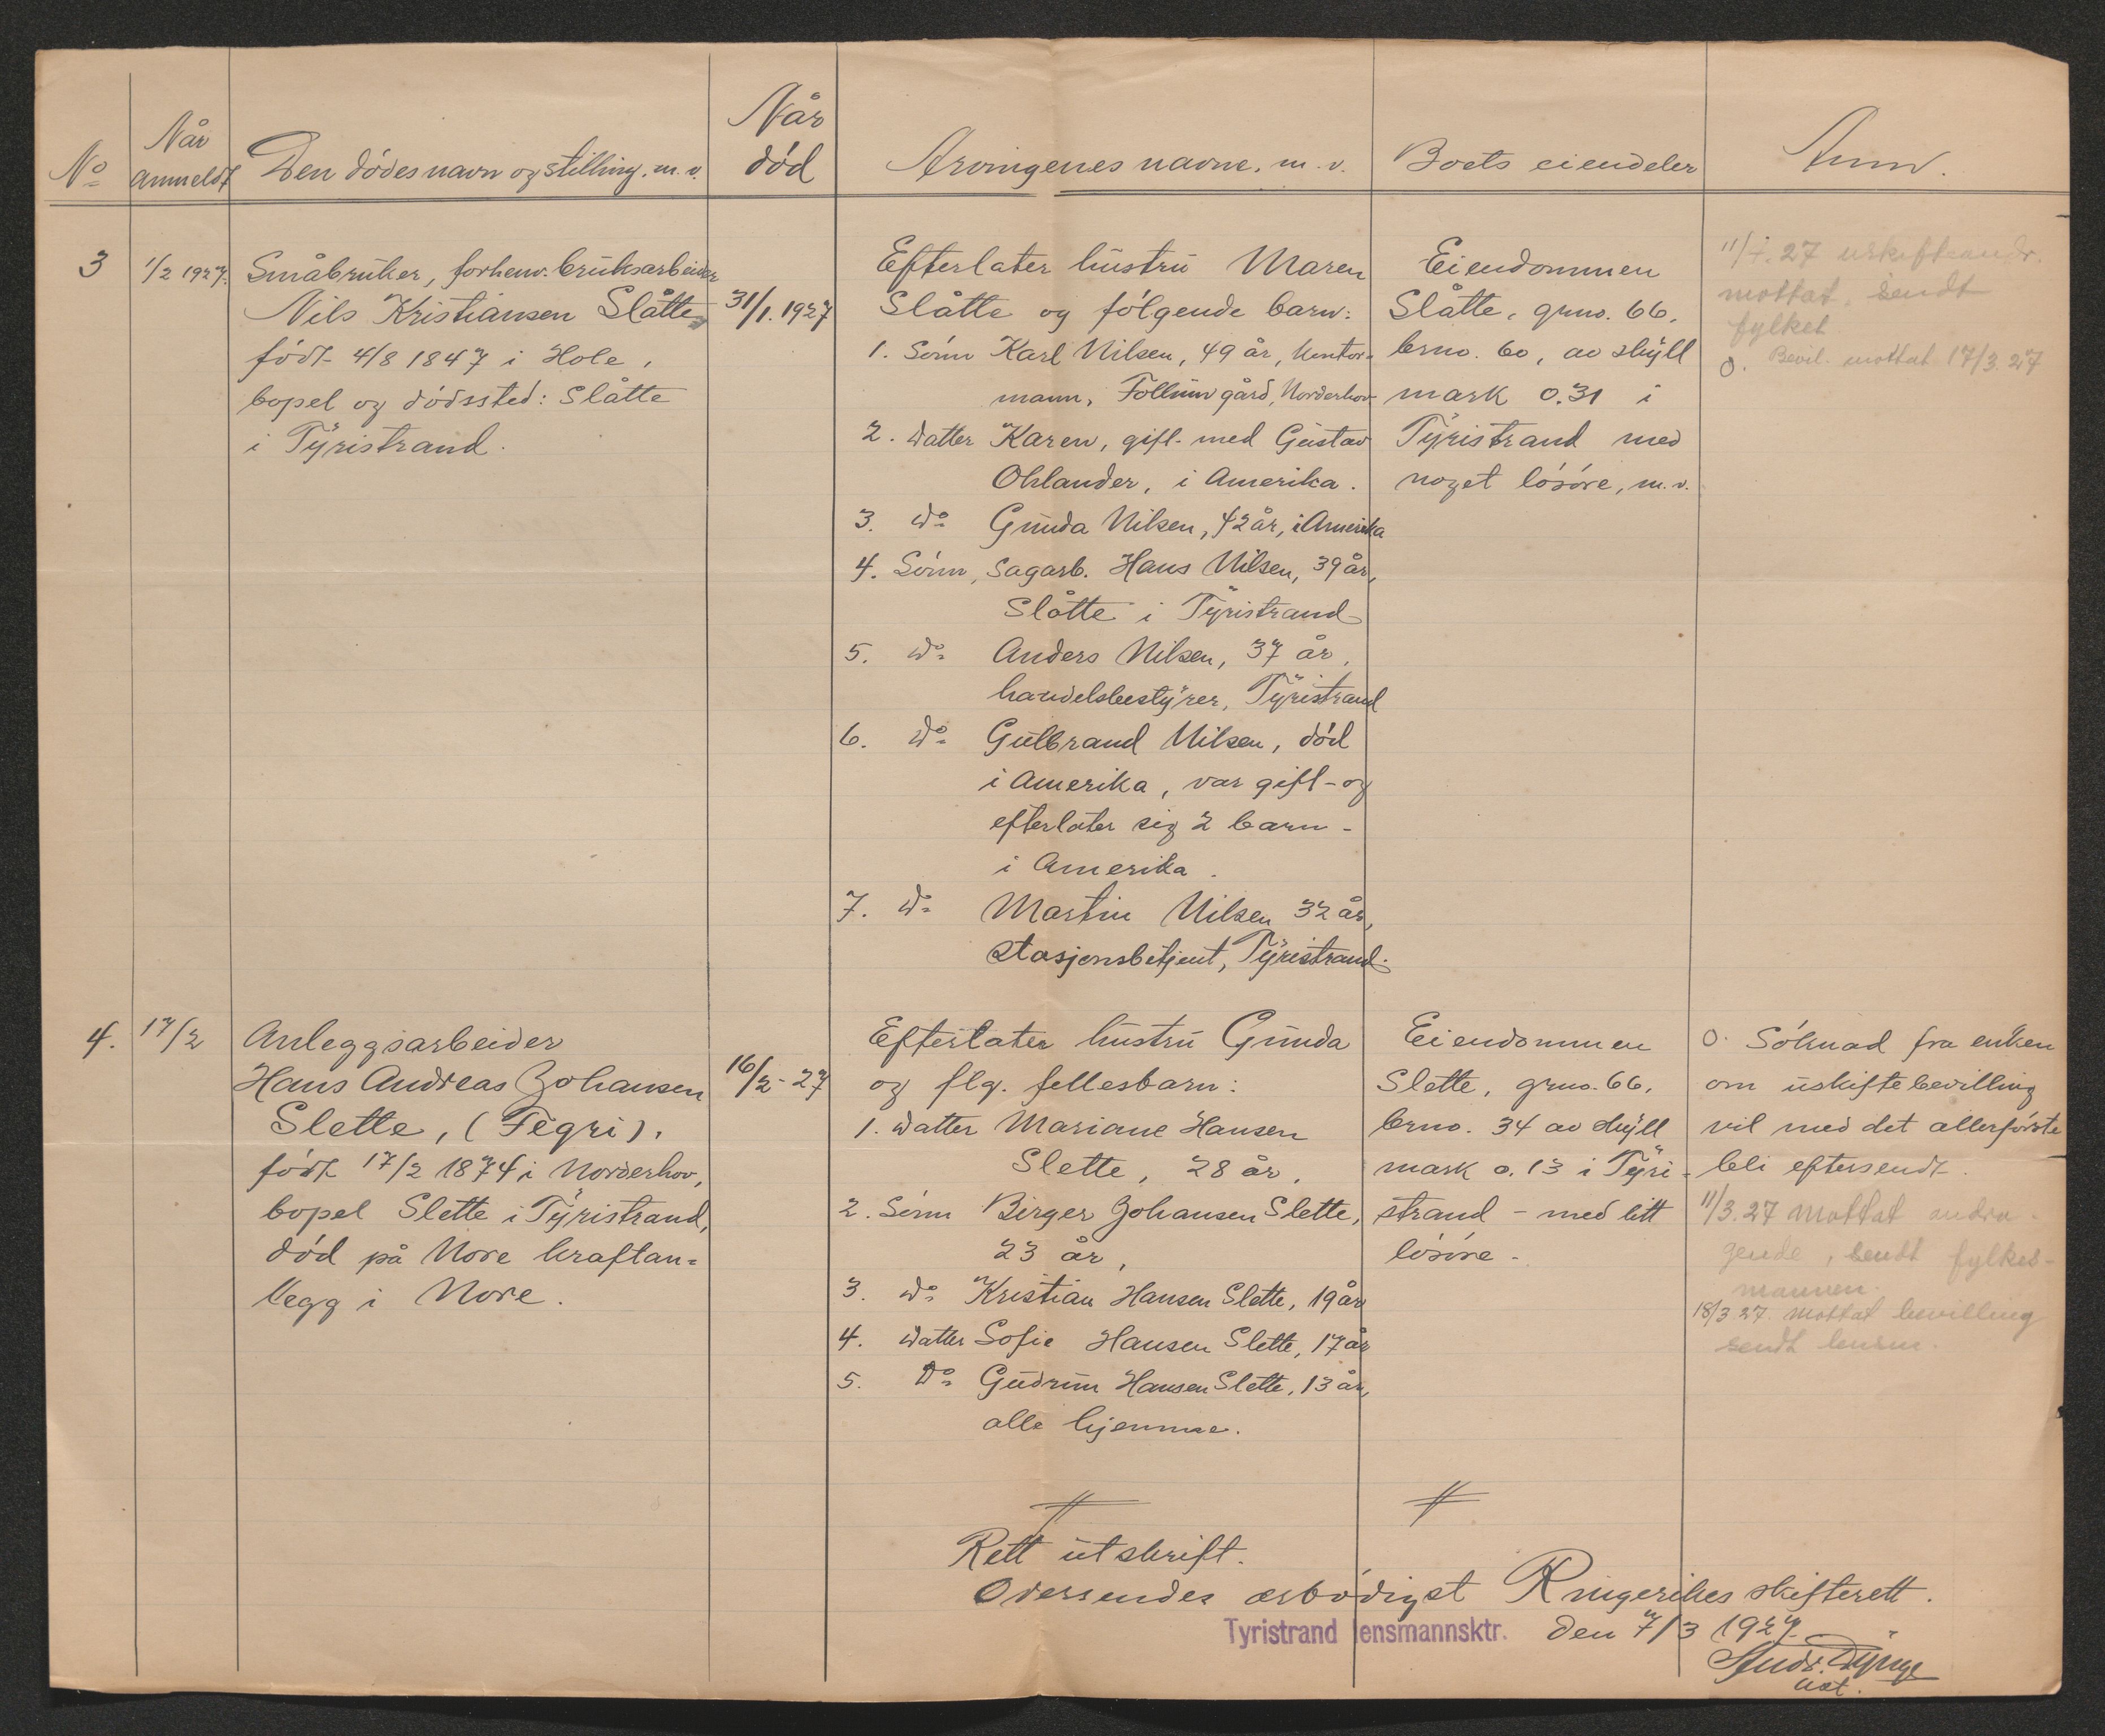 No
Når
anmeldt
Den dødes navn og stilling. m.v.
Når
død
Arvingenes navne. m.v.
Boets eiendeler
Anm.
3
1/2 1927.
Småbruker, forhenv. bruksarbeider
Nils Kristiansen Slåtte
født 4/8 1847 i Hole,
bopel og dødssted: Slåtte
i Tyristrand.
31/1. 1927
Efterlater hustru Maren
Slåtte og følgende barn:
1. Sønn Karl Nilsen, 49 år, kontor-
mann, Follum gård, Norderhov
2. Datter Karen, gift med Gustav
Ohlander, i Amerika.
3. do Gunda Nilsen, 42 år, i Amerika
4. Sønn, Sagarb. Hans Nilsen, 39 år,
Slåtte i Tyristrand
5. do Anders Nilsen, 37 år,
handelsbestyrer, Tyristrand
6. do Gulbrand Nilsen, død
i Amerika, var gift - og
efterlater sig 2 barn -
i Amerika.
7. do Martin Nilsen 32 år,
stasjonsbetjent, Tyristrand.
Eiendommen
Slåtte, grno. 66,
brno. 60, av skyll
mark 0.31 i
Tyristrand med
noget løsøre, m.v.
27 uskifteandr.
mottat, sendt
fylket
0. Bevil. mottat 17/3.27
4.
17/2
Anleggsarbeider
Hans Andreas Johansen
Slette, (Fegri).
født 17/2 1874 i Norderhov,
bopel Slette i Tyristrand,
død på Nore kraftan=
legg i Nore.
16/2 - 27
Efterlater hustru Gunda
og flg. fellesbarn:
1. Datter Mariane Hansen
Slette, 28 år,
2. Sønn Birger Johansen Slette,
23 år,
3. do Kristian Hansen Slette, 19 år
4. Datter Sofie Hansen Slette, 17 år
5. Do Gudrun Hansen Slette, 13 år,
alle hjemme.
Eiendommen
Slette, grno. 66,
brno. 34 av skyll
mark 0.13 i Tyri-
strand - med litt
løsøre -
0. Søknad fra enken
om uskiftebevilling
vil med det allerførste
bli eftersendt.
11/3.27 Mottat andra-
gende, sendt fylkes-
mannen.
18/3 27. Mottat bevilling
sendt lensm.
Rett utskrift.
Oversendes ærbødigst Ringerikes skifterett.
Tyristrand lensmannsktr. den 7/3 1927.